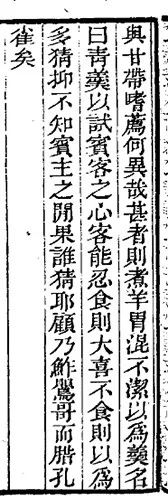 與甘帶嗜薦何異哉甚者則煮羊胃混不潔以為羹名
曰靑羹以試賓客之心客能忍食則大喜不食則以為
多猜抑不知賓主之閒果誰猜耶顧乃鮓鸎哥而腊孔
雀矣